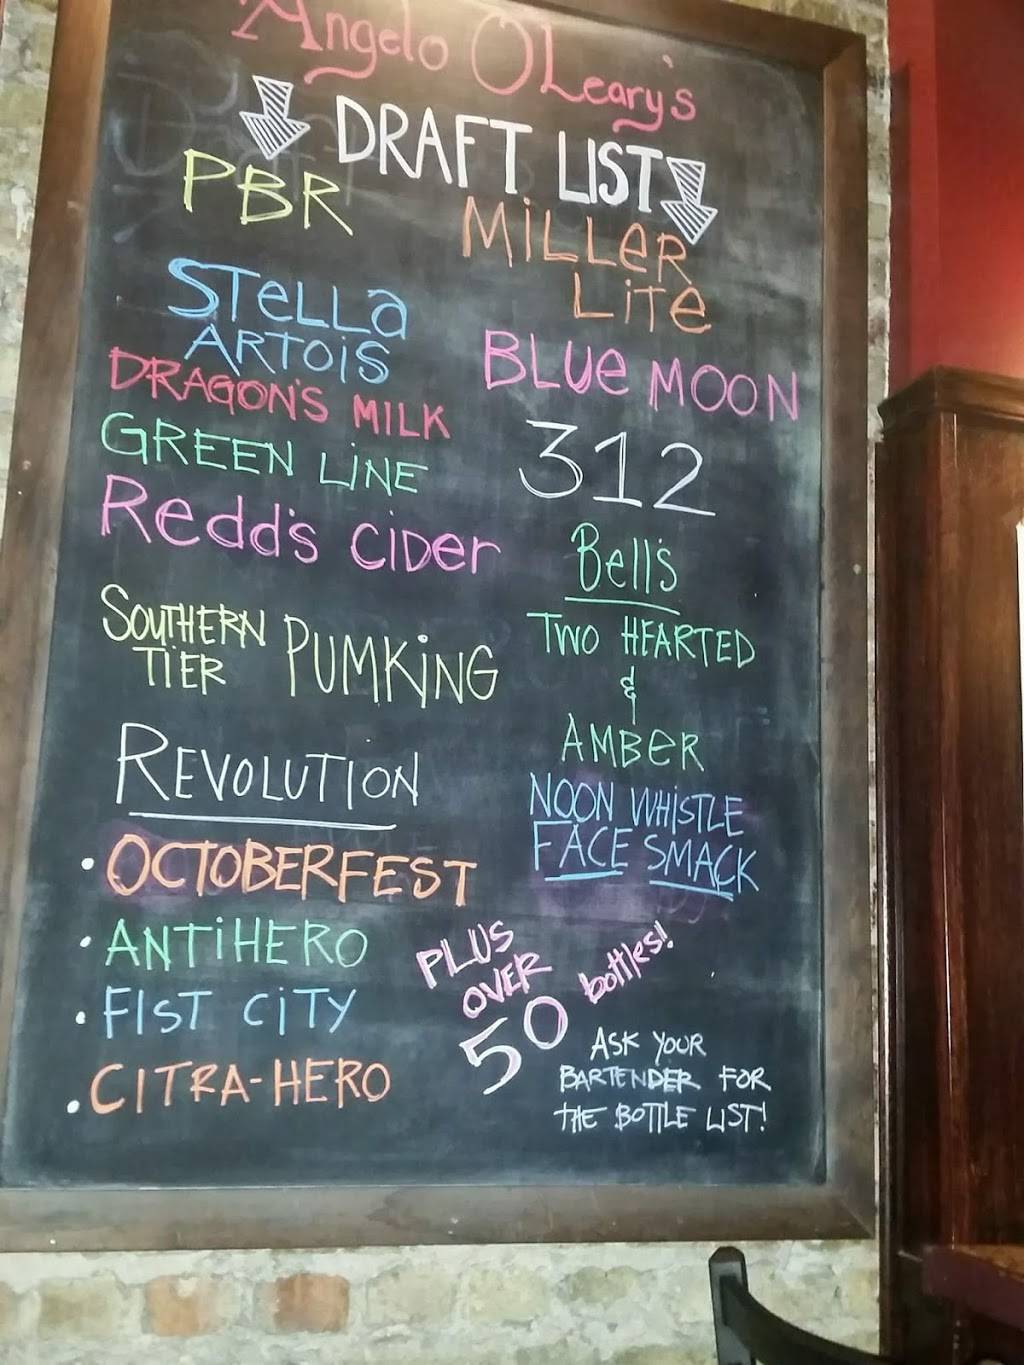 Angelo O'Leary's
DRAFT LIST
PBR
STELLA
ARTOIS
DRAGON'S MILK
GREEN LINE
Redd's CiDer
SOUTHERN
TIER
PUMKING
REVOLUTION
• OCTOBERFEST
• ANTiHERO
• FIST CiTY
• CITRA-HERO
MiLLER
LiTe
BLUe MOON
312
Bell's
TWO HEARTED
&
AMBER
NOON WHiSTLE
FACE SMACK
PLUS
OVER
50 bottles!
ASK YOUR
BARTENDER FOR
THE BOTTLE LIST!